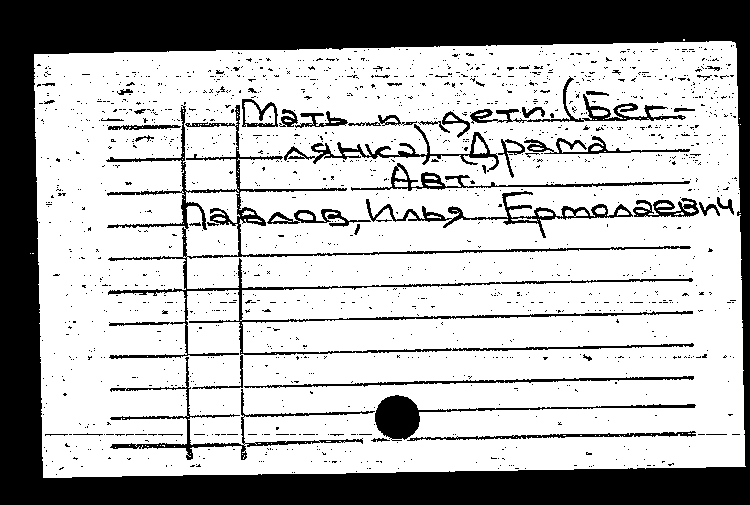 Мать и дети. (Бег-
лянка). Драма.
Авт.:
Павлов, Илья Ермолаевич.